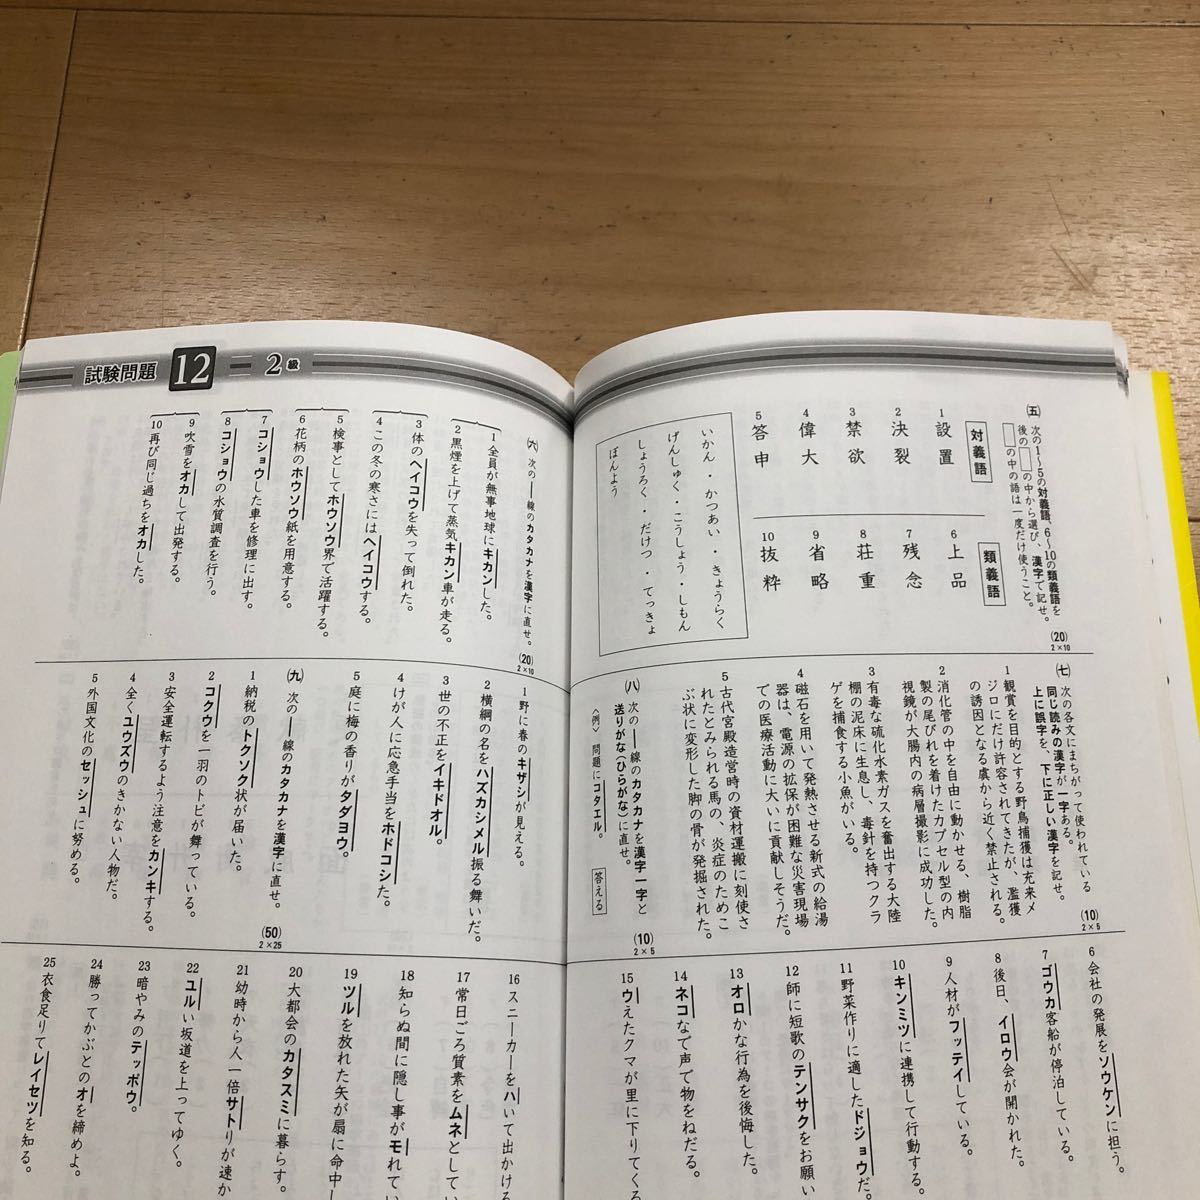 試験問題 12 2級
(五) 次の1〜5の対義語、6〜10の類義語を
後の□の中から選び、漢字で記せ。
□の中の語は一度だけ使うこと。
(20)
2×10
対義語
1 設置
2 決裂
3 禁欲
4 偉大
5 答申
類義語
6 上品
7 残念
8 荘重
9 省略
10 抜粋
いかん・かつあい・きょうらく
げんしゅく・こうしょう・しもん
しょうろく・だけつ・てっきょ
ぼんよう
(六) 次の――線のカタカナを漢字に直せ。
(20)
2×10
1 全員が無事地球にキカンした。
2 黒煙を上げて蒸気キカン車が走る。
3 体のヘイコウを失って倒れた。
4 この冬の寒さにはヘイコウする。
5 検事としてホウソウ界で活躍する。
6 花柄のホウソウ紙を用意する。
7 コショウした車を修理に出す。
8 コショウの水質調査を行う。
9 吹雪をオカして出発する。
10 再び同じ過ちをオカした。
(七) 次の各文にまちがって使われている
同じ読みの漢字が一字ある。
上に誤字を、下に正しい漢字を記せ。
(10)
2×5
1 観賞を目的とする野鳥捕獲は充来メ
ジロにだけ許容されてきたが、濫獲
の誘因となる虞から近く禁止される。
2 消化管の中を自由に動かせる、樹脂
製の尾びれを着けたカプセル型の内
視鏡が大腸内の病層撮影に成功した。
3 有毒な硫化水素ガスを奮出する大陸
棚の泥床に生息し、毒針を持つクラ
ゲを捕食する小魚がいる。
4 磁石を用いて発熱させる新式の給湯
器は、電源の拡保が困難な災害現場
での医療活動に大いに貢献しそうだ。
5 古代宮殿造営時の資材運搬に刻使さ
れたとみられる馬の、炎症のためこ
ぶ状に変形した脚の骨が発掘された。
(八) 次の――線のカタカナを漢字一字と
送りがな(ひらがな)に直せ。
〈例〉問題にコタエル。 答える
(10)
2×5
1 野に春のキザシが見える。
2 横綱の名をハズカシメル振る舞いだ。
3 世の不正をイキドオル。
4 けが人に応急手当をホドコシた。
5 庭に梅の香りがタダヨウ。
(九) 次の――線のカタカナを漢字に直せ。
(50)
2×25
1 納税のトクソク状が届いた。
2 コクウを一羽のトビが舞っている。
3 安全運転するよう注意をカンキする。
4 全くユウズウのきかない人物だ。
5 外国文化のセッシュに努める。
6 会社の発展をソウケンに担う。
7 ゴウカ客船が停泊している。
8 後日、イロウ会が開かれた。
9 人材がフッテイしている。
10 キンミツに連携して行動する。
11 野菜作りに適したドジョウだ。
12 師に短歌のテンサクをお願い
13 オロかな行為を後悔した。
14 ネコなで声で物をねだる。
15 ウえたクマが里に下りてくる
16 スニーカーをハいて出かける
17 常日ごろ質素をムネとしてい
18 知らぬ間に隠し事がモれてい
19 ツルを放れた矢が扇に命中し
20 大都会のカタスミに暮らす。
21 幼時から人一倍サトりが速か
22 ユルい坂道を上ってゆく。
23 暗やみのテッポウ。
24 勝ってかぶとのオを締めよ。
25 衣食足りてレイセツを知る。